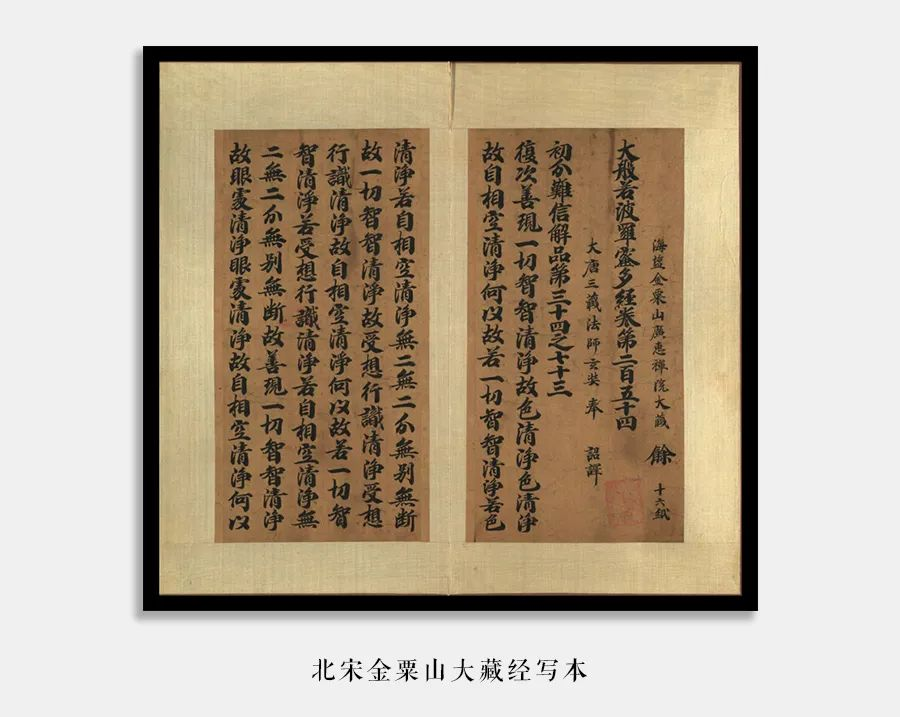 海鹽金粟山廣惠禪院大藏 餘 十六紙
大般若波羅蜜多經卷第二百五十四
大唐三藏法師玄奘 奉 詔譯
初分難信解品第三十四之七十三
復次善現一切智智清淨故色清淨色清淨
故自相空清淨何以故若一切智智清淨若色
清淨若自相空清淨無二無二分無別無斷
故一切智智清淨故受想行識清淨受想
行識清淨故自相空清淨何以故若一切智
智清淨若受想行識清淨若自相空清淨無
二無二分無別無斷故善現一切智智清淨
故眼處清淨眼處清淨故自相空清淨何以
北宋金粟山大藏经写本